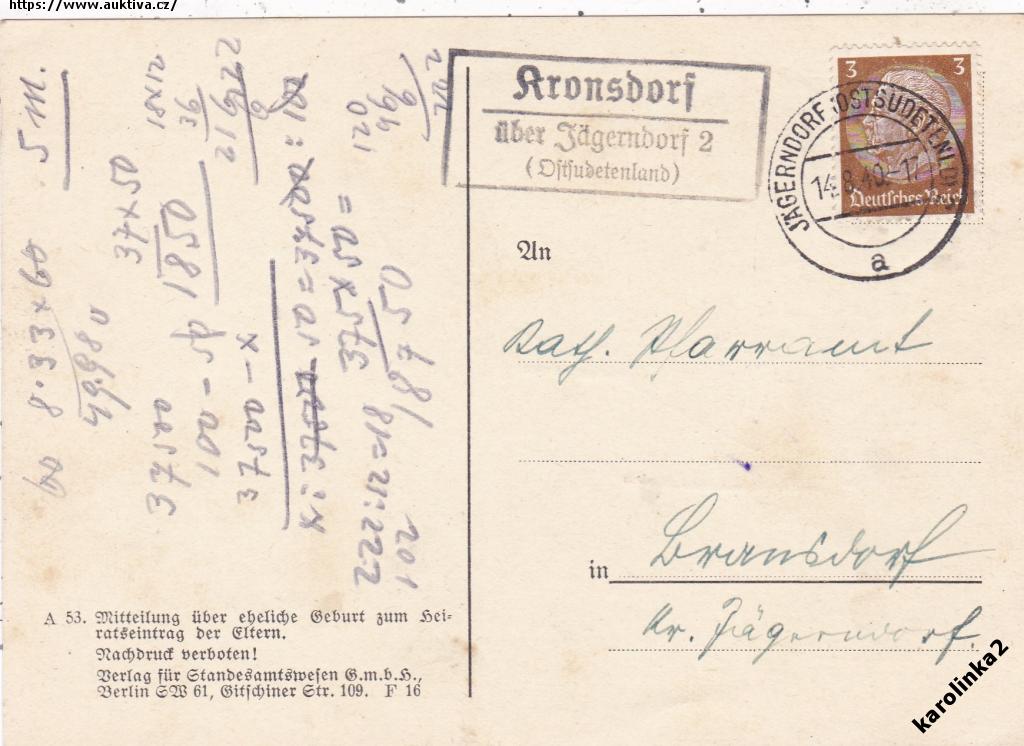 https://www.auktiva.cz/
Kronsdorf
über Jägerndorf 2
(Ostsudetenland)
3 3
Deutsches Reich
JÄGERNDORF (OSTSUDETENLD)
14.8.40.-17
a
An
Kath. Pfarramt
in Bransdorf
Kr. Jägerndorf.
5 M.
15x12
37x50
1850
8.33x60
49980
37500
100 – 50
37500 – x
375x50 =
18750
A 53. Mitteilung über eheliche Geburt zum Hei-
ratseintrag der Eltern.
Nachdruck verboten!
Verlag für Standesamtswesen G.m.b.H.,
Berlin SW 61, Gitschiner Str. 109. F 16
karolinka2